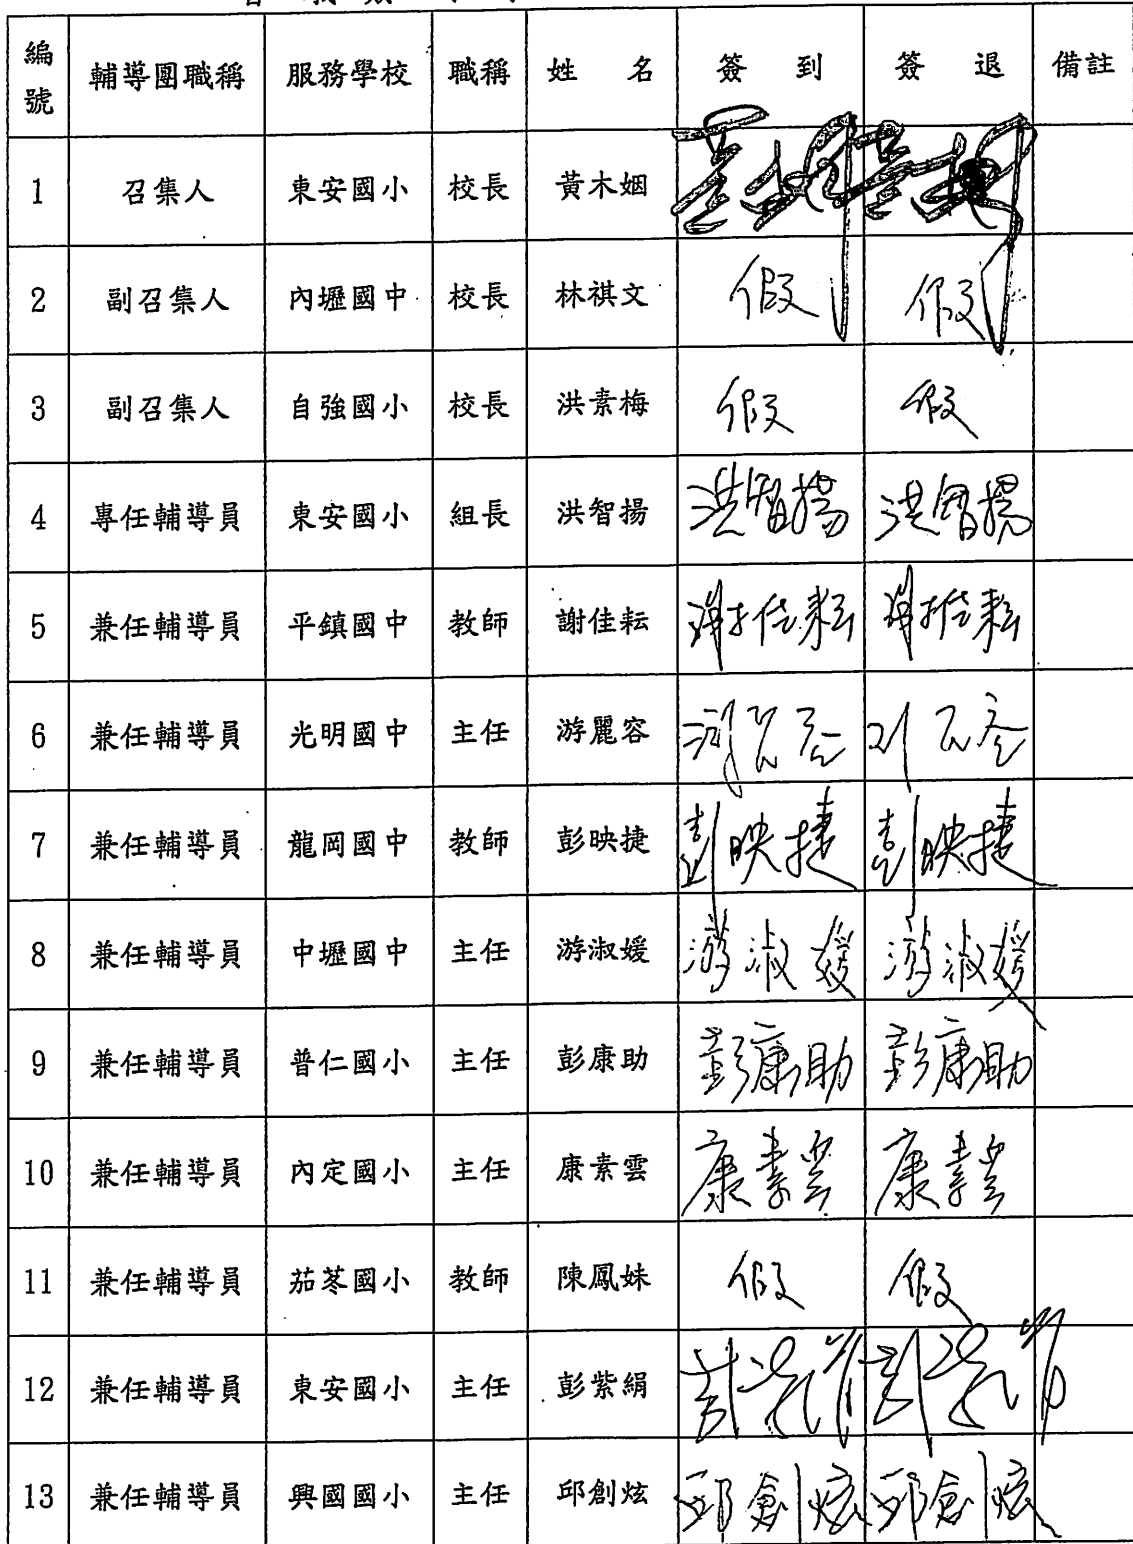 編號 輔導團職稱 服務學校 職稱 姓名 簽到 簽退 備註
1 召集人 東安國小 校長 黃木姻
2 副召集人 內壢國中 校長 林祺文 假 假
3 副召集人 自強國小 校長 洪素梅 假 假
4 專任輔導員 東安國小 組長 洪智揚 洪智揚 洪智揚
5 兼任輔導員 平鎮國中 教師 謝佳耘 謝佳耘 謝佳耘
6 兼任輔導員 光明國中 主任 游麗容
7 兼任輔導員 龍岡國中 教師 彭映捷 彭映捷 彭映捷
8 兼任輔導員 中壢國中 主任 游淑媛 游淑媛 游淑媛
9 兼任輔導員 普仁國小 主任 彭康助 彭康助 彭康助
10 兼任輔導員 內定國小 主任 康素雲 康素雲 康素雲
11 兼任輔導員 茄苳國小 教師 陳鳳妹 假 假
12 兼任輔導員 東安國小 主任 彭紫絹
13 兼任輔導員 興國國小 主任 邱創炫 邱創炫 邱創炫